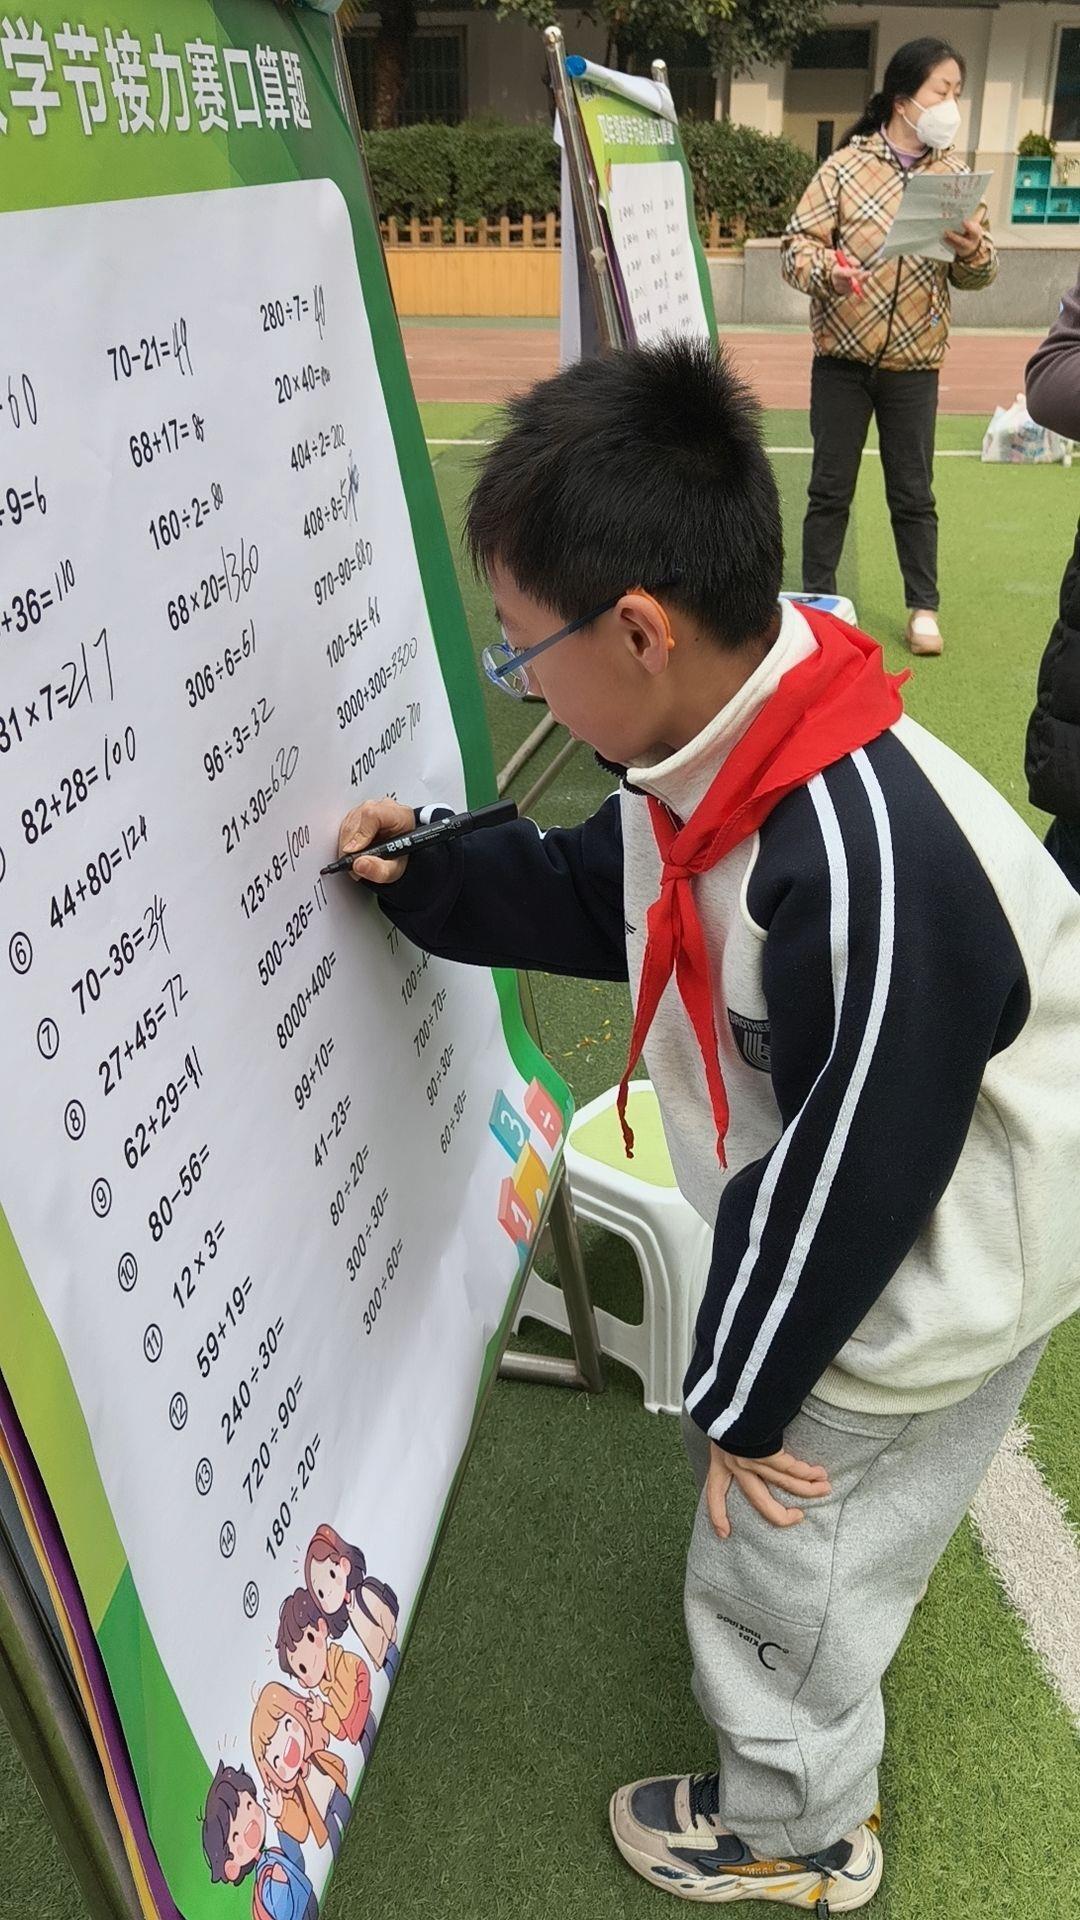 学节接力赛口算题
四年级数学节接力赛口算题
60
÷9=6
+36=110
31×7=217
82+28=100
⑥ 44+80=124
⑦ 70-36=34
⑧ 27+45=72
⑨ 62+29=91
⑩ 80-56=
⑪ 12×3=
⑫ 59+19=
⑬ 240÷30=
⑭ 720÷90=
⑮ 180÷20=
70-21=49
68+17=85
160÷2=80
68×20=1360
306÷6=51
96÷3=32
21×30=630
125×8=1000
500-326=17
8000+400=
99+10=
41-23=
80÷20=
300÷30=
300÷60=
280÷7=40
20×40=800
404÷2=202
408÷8=5
970-90=880
100-54=46
3000+300=3300
4700-4000=700
100÷4
700÷70=
90÷30=
60÷30=
3
÷
1
BROTHER
KIDS